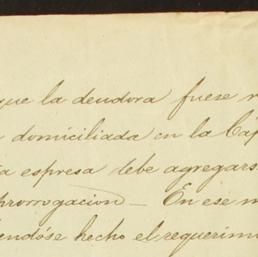 que la deudora fuese
domiciliada en la Cap
espresa debe agregars
prorrogacion — En ese m
endóse hecho el requerim